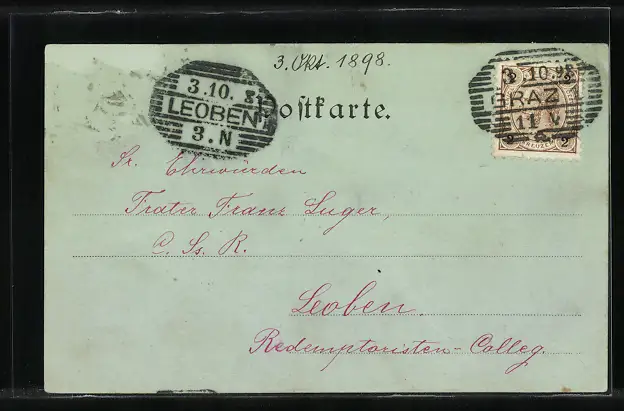 3. Okt. 1898.
3.10. 98
GRAZ
11 V.
2 2
KREUZER
3.10. 98
LEOBEN
3.N
Postkarte.
Sr. Ehrwürden
Frater Franz Luger,
C. Ss. R.
Leoben.
Redemptoristen-Colleg.